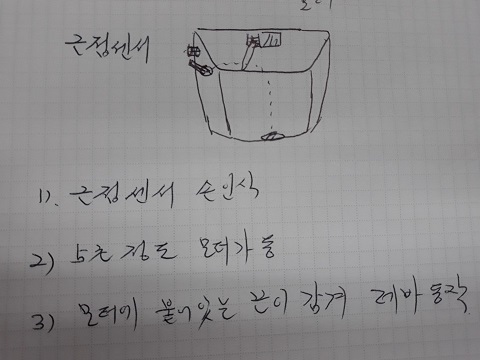 근접센서
1). 근접센서 손인식
2) 5초 정도 모터가동
3) 모터에 붙어있는 끈이 감겨 레바동작